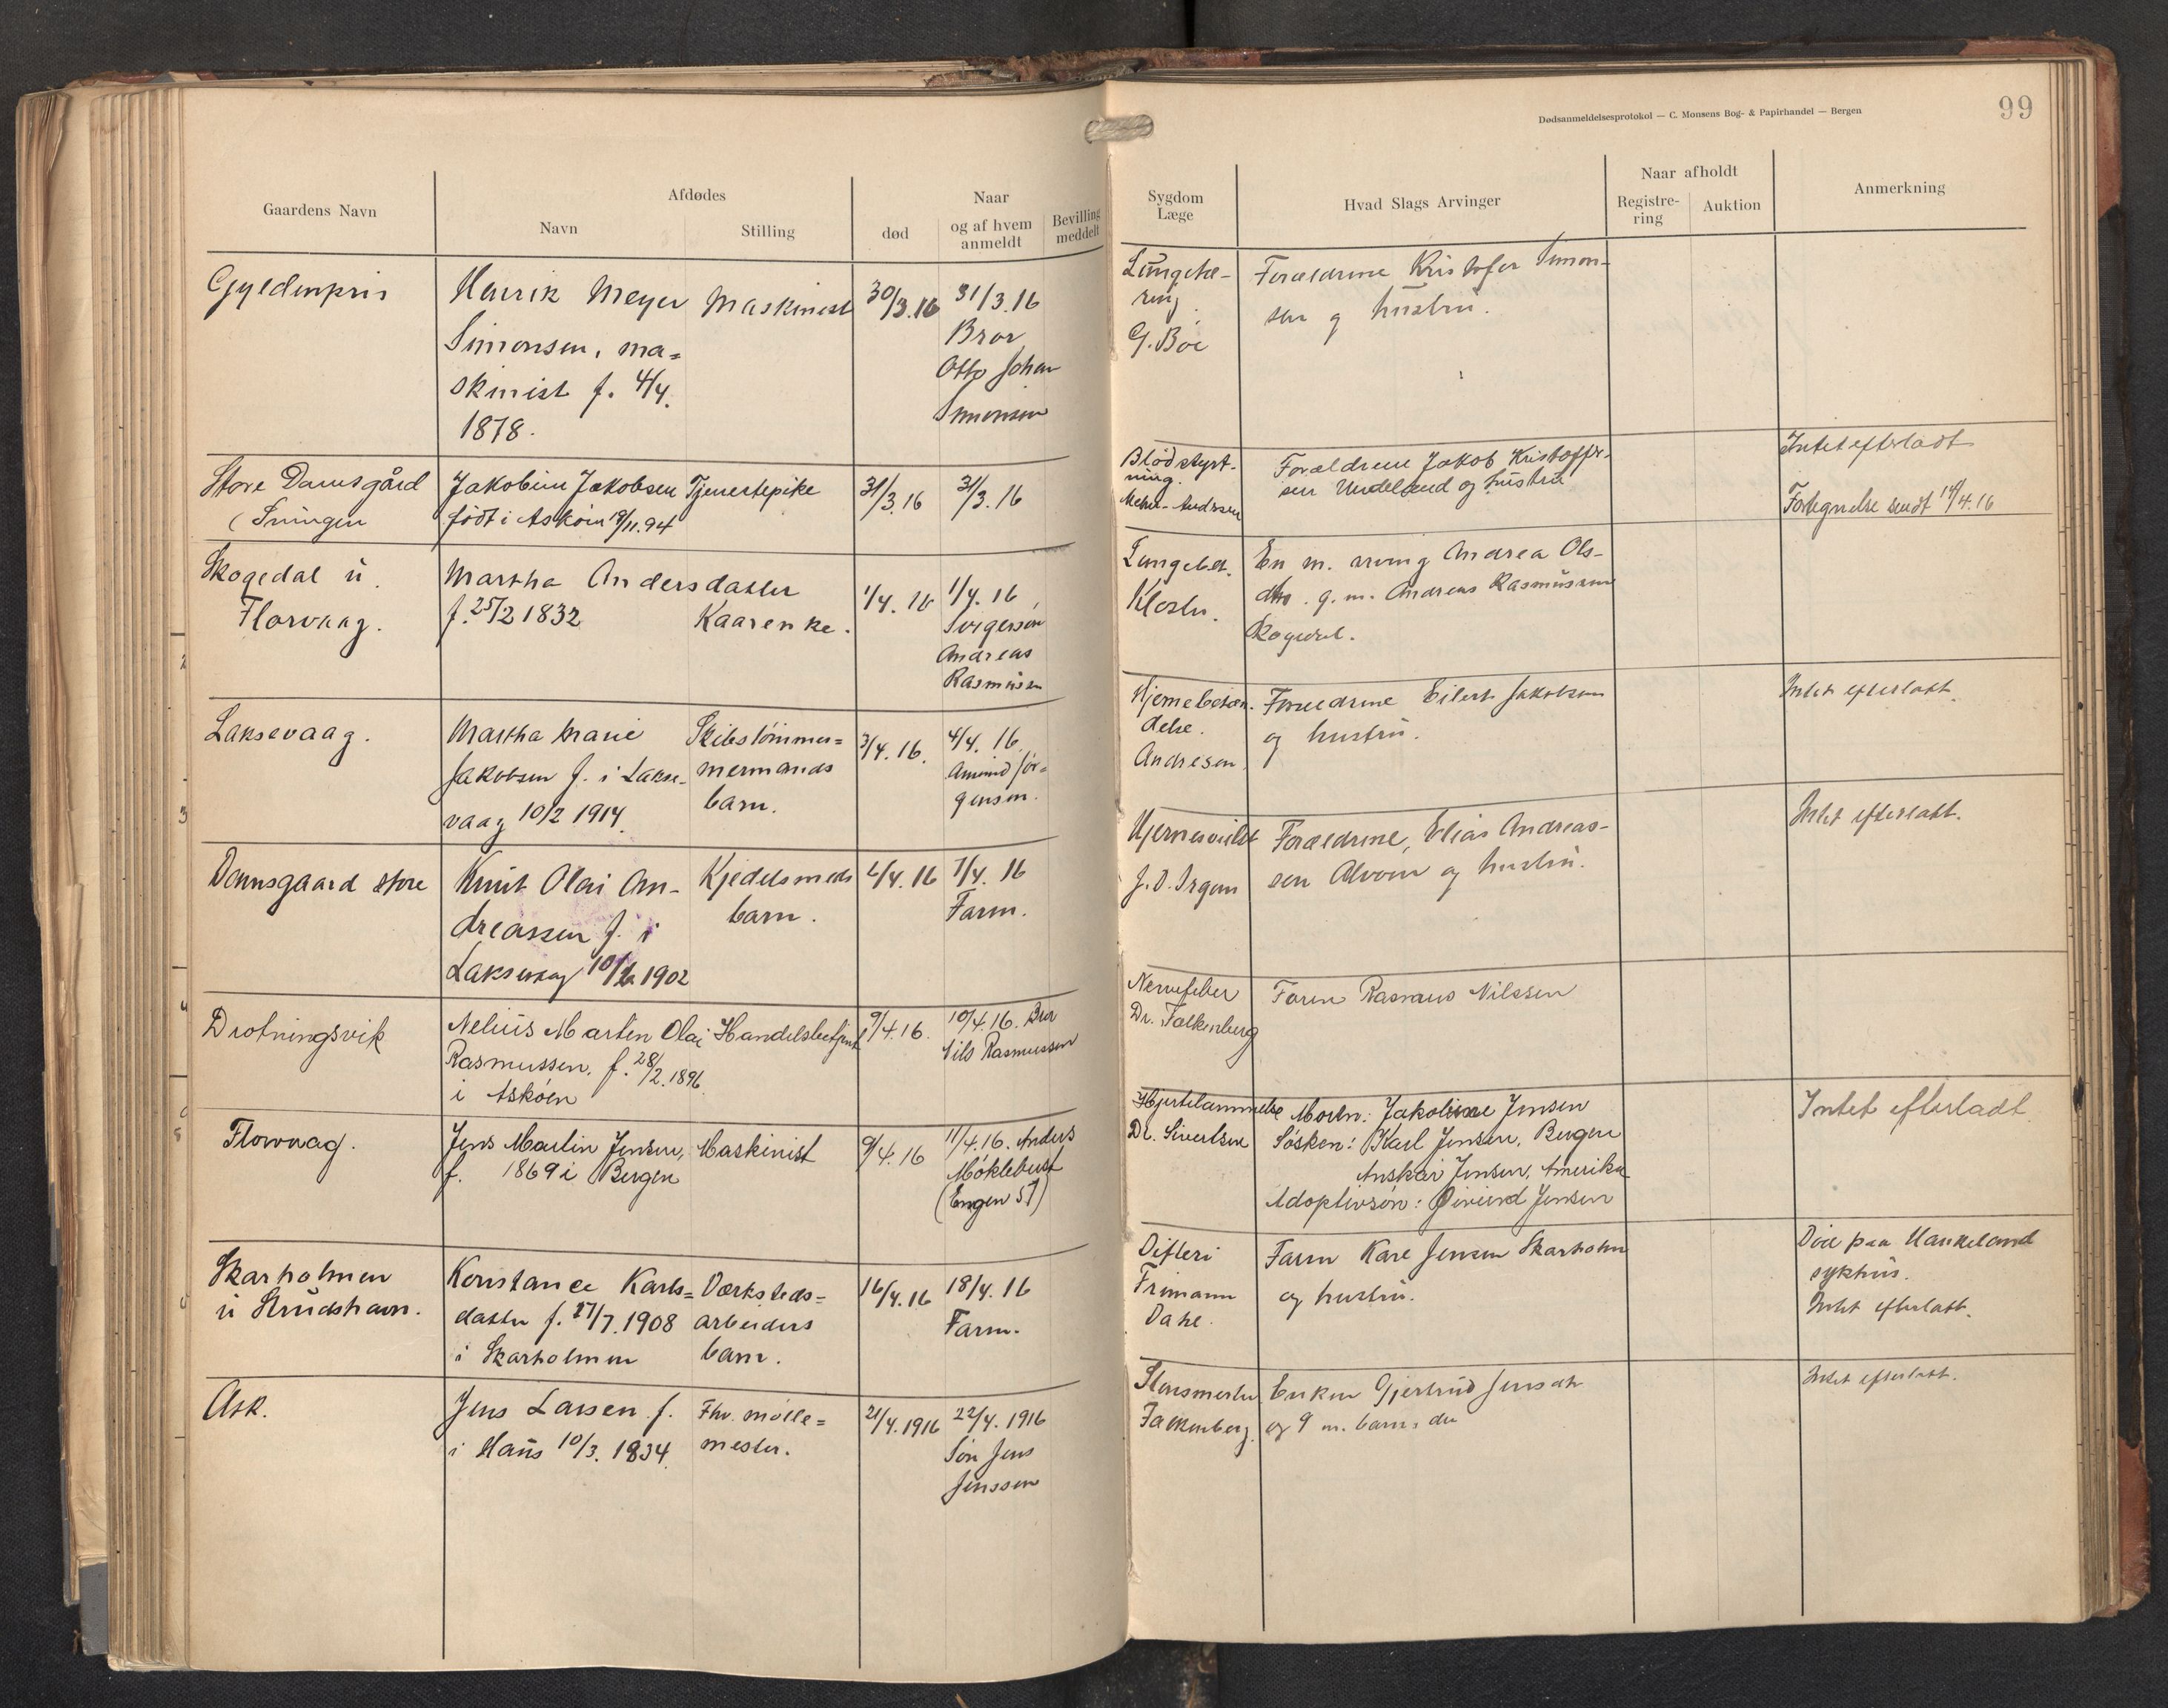 Dødsanmeldelsesprotokol — C. Monsens Bog- & Papirhandel — Bergen
99
Gaardens Navn
Afdødes
Navn
Stilling
død
Naar
og af hvem
anmeldt
Bevilling
meddelt
Sygdom
Læge
Hvad Slags Arvinger
Naar afholdt
Registre-
ring
Auktion
Anmerkning
Gyldenpris
Henrik Meyer
Simonsen, ma=
skinist f. 4/4.
1878.
Maskinist
30/3.16
31/3.16
Bror
Otto Johan
Simonsen
Lungetæ-
ring.
G. Böe
Forældrene Kristofer Simon-
sen og hustru.
Store Damsgård
Jakobine Jakobsen
født i Askøen 19/11.94
Tjenestepike
31/3.16
31/3.16
Blodstyrt-
ning.
Andersen
Forældrene Jakob Kristoffer-
sen og hustru
Intet efterladt
Fortegnelse sendt 14/4.16
Skogedal u.
Florvaag.
Martha Andersdatter
f. 25/2 1832
Kaarenke.
1/4.16
1/4.16
Svigersøn
Andreas
Rasmussen
Lungebet.
Kloster.
En m. arving Andrea Ols-
dtr. g.m. Andreas Rasmussen
Skogedal.
Laksevaag.
Martha Marie
Jakobsen f. i Lakse-
vaag 10/2 1914.
Skibstømmer=
mermands
barn.
3/4.16.
4/4.16.
Amund Jör-
gensen.
Hjernebetæn-
delse.
Andresen
Forældrene Eilert Jakobsen
og hustru.
Intet efterlatt.
Damsgaard store
Knut Olai An-
dreassen f. i
Laksevaag 1902
Kjedelsmeds
barn.
6/4.16
7/4.16
Faren.
Hjernesvulst
Forældrene, Elias Andreas-
sen Alvøen og hustru.
Intet efterlatt.
Drotningsvik
Nelius Martin Olai
Rasmussen. f. 28/2.1896
i Askøen
Handelsbetjent
9/4.16.
10/4.16. Bror
Nils Rasmussen
Nervefeber
Dr. Falkenberg
Faren Rasmus Nilssen
Florvaag.
Jens Martin Jensen,
f. 1869 i Bergen
Maskinist
9/4.16
11/4.16. Anders
Møklebust
(Engen 57)
Hjertelammelse
Dr. Sivertsen
Moren: Jakobine Jensen
Søsken: Karl Jensen, Bergen
Anskar Jensen, Amerika
Adoptivsøn: Øivind Jensen
Intet efterladt
Skarholmen
u Strudshavn.
Konstance Karls=
datter f. 27/7.1908
i Skarholmen
Værksteds=
arbeiders
barn.
16/4.16
18/4.16
Faren.
Difteri
Frimann
Dahl.
Faren Karl Jensen Skarholm
og hustru.
Død paa Haukeland
sykhus.
Intet efterlatt.
Ask.
Jens Larsen f.
i Haus 10/3.1834.
Fhv. mølle=
mester.
21/4.1916
22/4.1916
Søn Jens
Jenssen
Falkenberg.
Enken Gjertrud Jensdtr
og 9 m. barn:
Intet efterlatt.